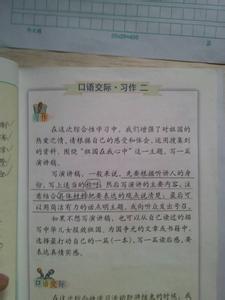 口语交际·习作二
习作
在这次综合性学习中，我们增强了对祖国的
热爱之情。请根据自己的感受和体会，运用搜集到
的资料，围绕“祖国在我心中”这一主题，写一篇
演讲稿。
写演讲稿，一般来说，先要根据听讲人的身
份，写上适当的称呼，然后写演讲的主要内容，注
意结合具体材料把要表达的观点说清楚；最后可
以用简洁有力的话点明主题，或向听众发出号召。
如果不想写演讲稿，也可以从自己读过的描
写中华儿女报效祖国、为国争光的文章或书籍中，
选择最打动自己的一篇（一本），写一篇读后感，要
表达真情实感。
口语交际